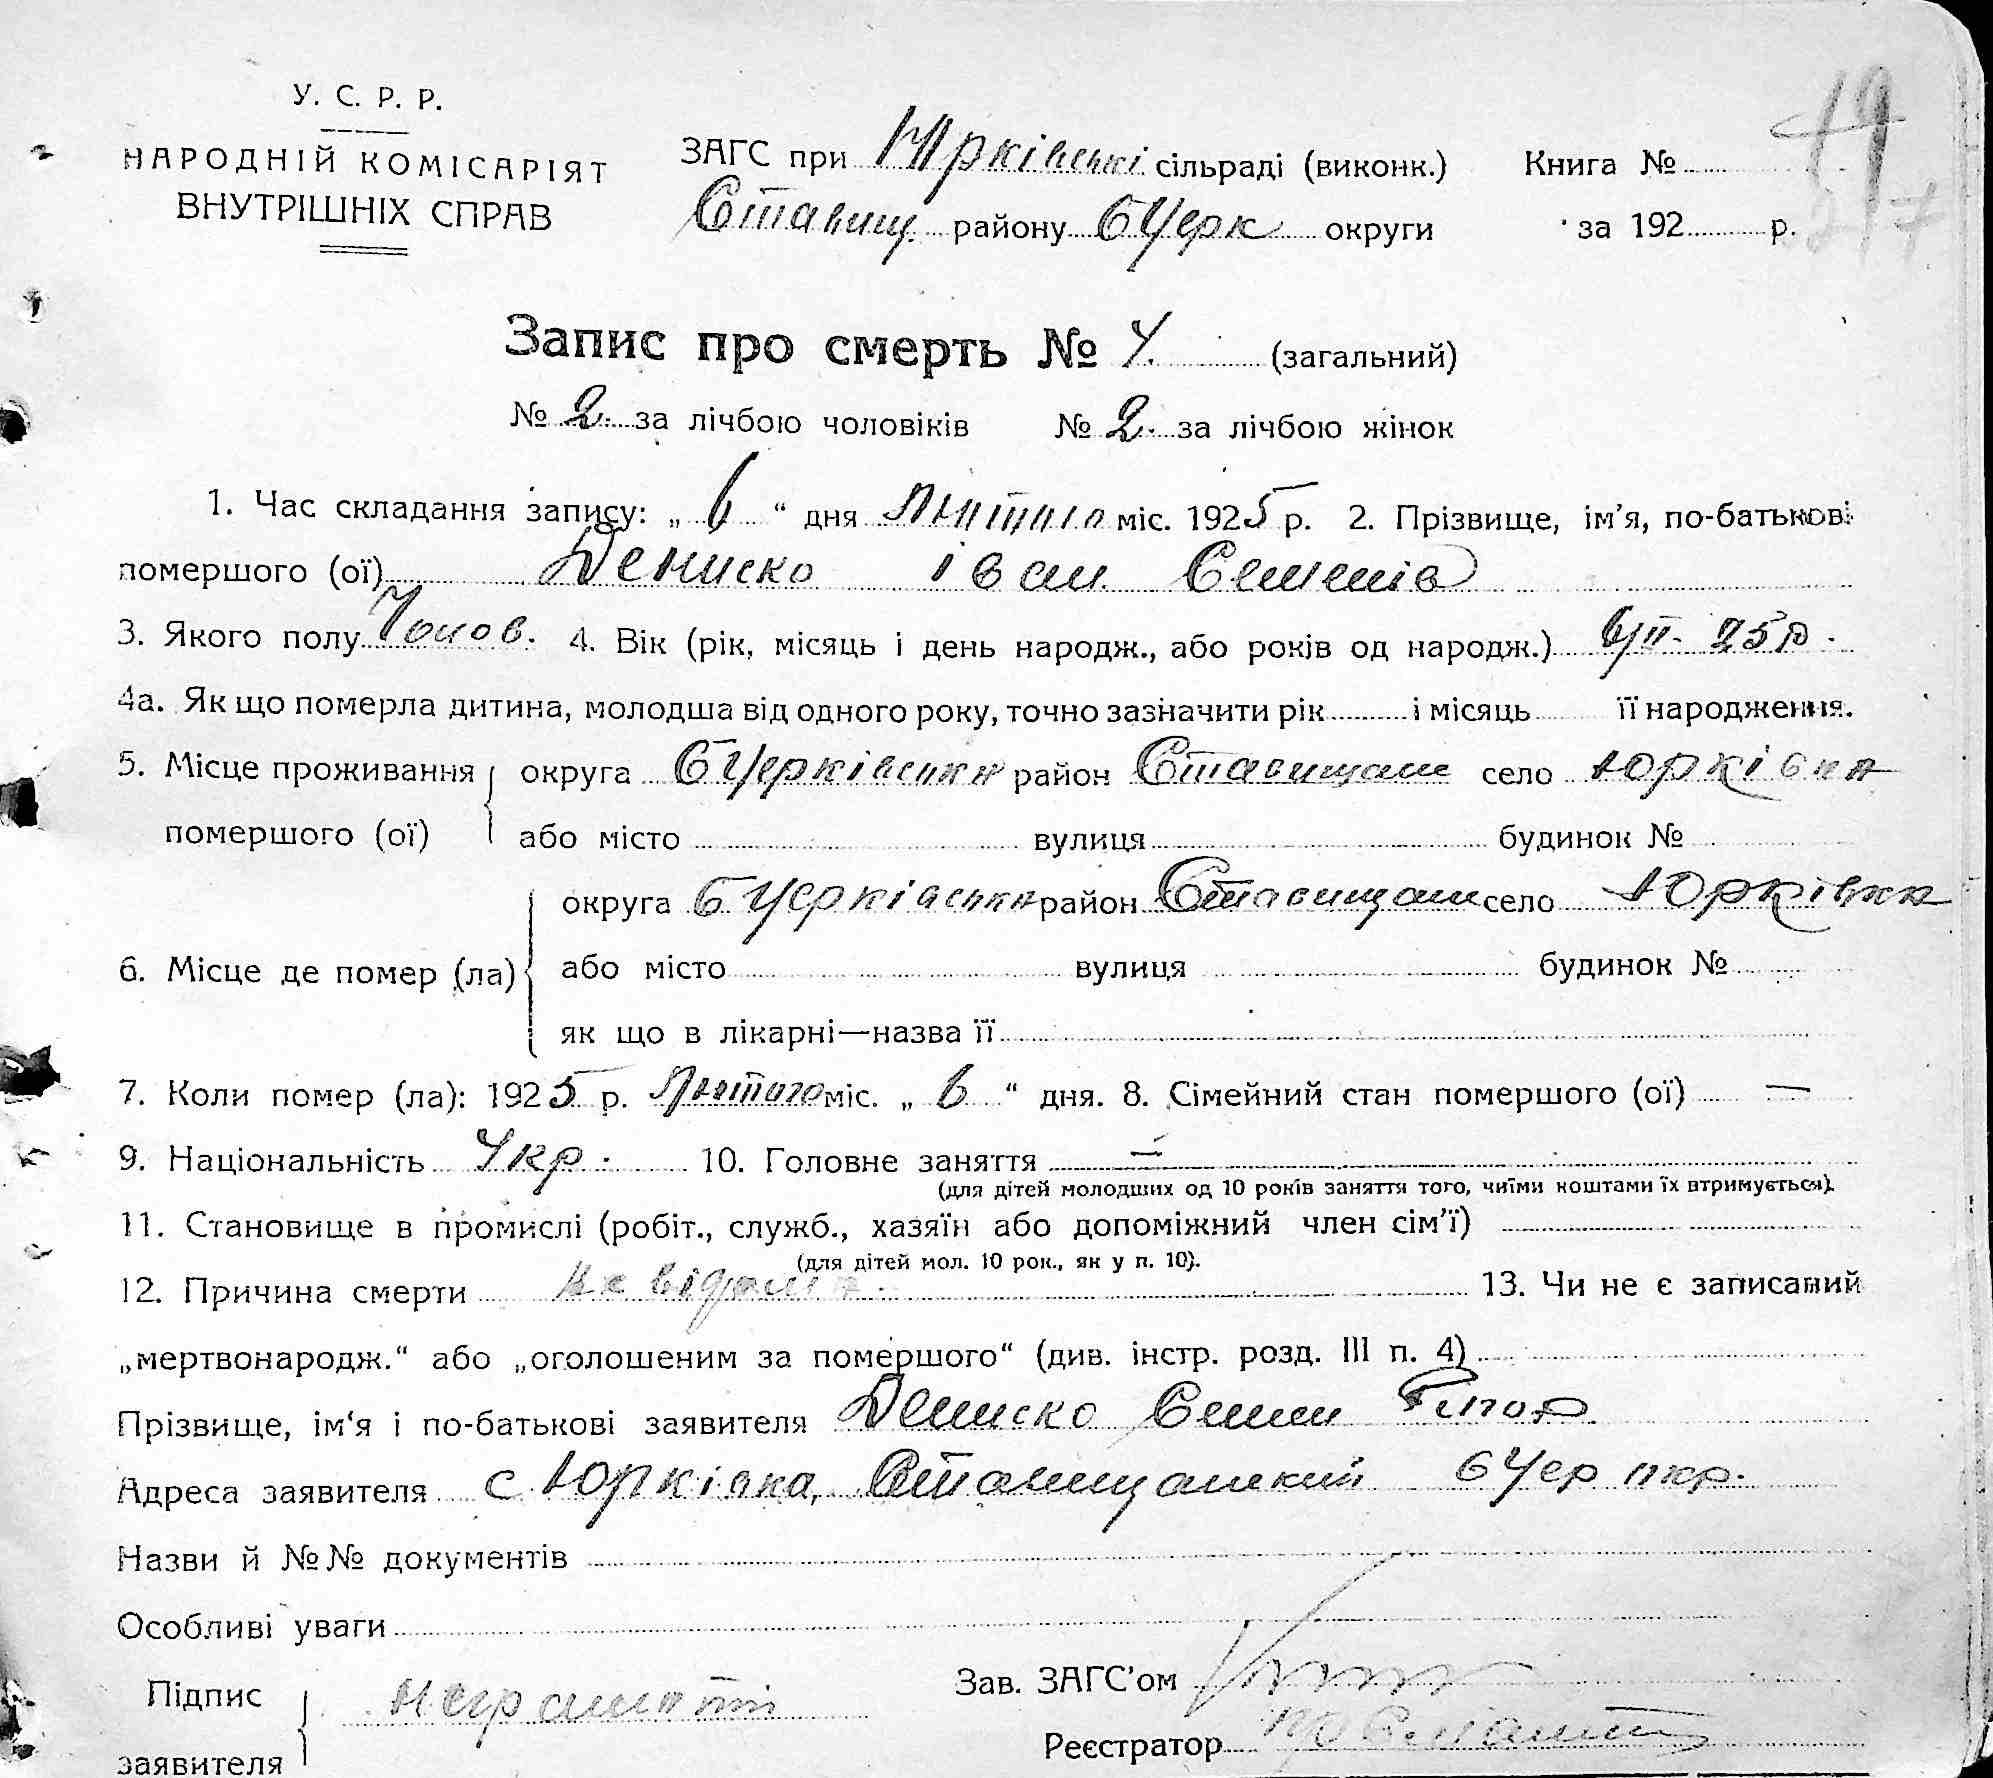 У. С. Р. Р.
НАРОДНІЙ КОМІСАРІЯТ
ВНУТРІШНІХ СПРАВ
ЗАГС при Юрківські сільраді (виконк.) Книга № 19
Ставищ. району БЧерк округи за 192 р. 217
Запис про смерть № 4. (загальний)
№ 2. за лічбою чоловіків № 2. за лічбою жінок
1. Час складання запису: „ 6 “ дня Лютого міс. 1925 р. 2. Прізвище, ім’я, по-батькові
помершого (ої) Дениско Іван Семенів
3. Якого полу Чолов. 4. Вік (рік, місяць і день народж., або років од народж.) 6/II- 25 р.
4а. Як що померла дитина, молодша від одного року, точно зазначити рік і місяць її народження.
5. Місце проживання округа БЧерківська район Ставищан село Юрківка
помершого (ої) або місто вулиця будинок №
округа БЧерківська район Ставищан село Юрківка
6. Місце де помер (ла) або місто вулиця будинок №
як що в лікарні—назва її
7. Коли помер (ла): 1925 р. Лютого міс. „ 6 “ дня. 8. Сімейний стан помершого (ої) —
9. Національність Укр. 10. Головне заняття —
(для дітей молодших од 10 років заняття того, чиїми коштами їх втримується).
11. Становище в промислі (робіт., служб., хазяїн або допоміжний член сім’ї)
(для дітей мол. 10 рок., як у п. 10).
12. Причина смерти не відома. 13. Чи не є записаний
„мертвонародж.“ або „оголошеним за помершого“ (див. інстр. розд. III п. 4)
Прізвище, ім‘я і по-батькові заявителя Дениско Семен
Адреса заявителя с. Юрківка, Ставищанский БЧер окр.
Назви й №№ документів
Особливі уваги
Підпис неграмотні Зав. ЗАГС’ом
заявителя Реєстратор